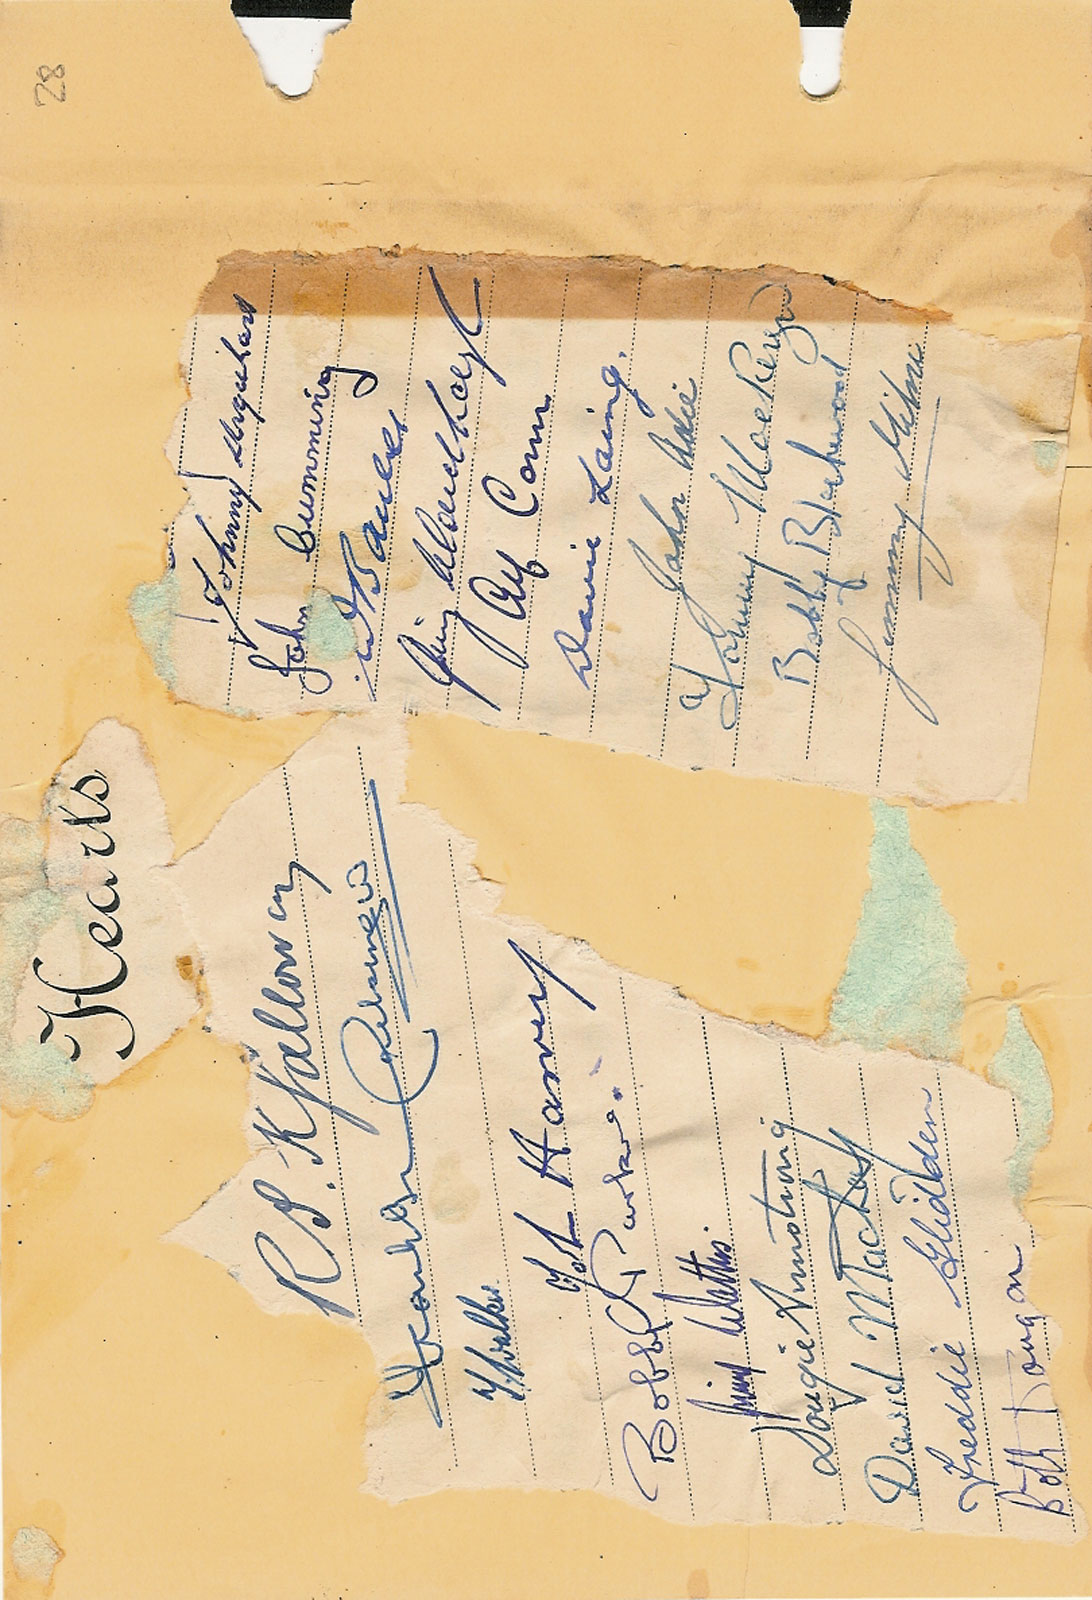 28
Hearts
R. S. K Galloway
Tommy Walker
John Harvey
Bobby Parker.
Jimmy Watters.
Dougie Armstrong
David Mackay
Freddie Glidden
Bobby Dougan
Johnny Urquhart
John Cumming
W Bauld
Jimmy Wardhaugh
Alf Conn
Davie Laing.
John Adie
Tommy Mackenzie
Bobby Blackwood
Jimmy Milne